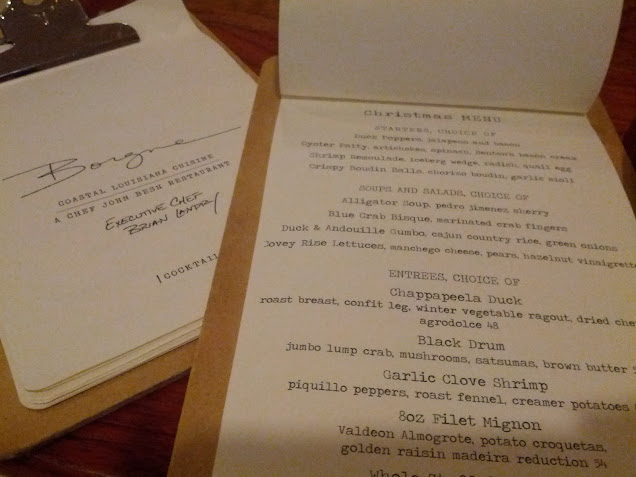 Borgne
COASTAL LOUISIANA CUISINE
A CHEF JOHN BESH RESTAURANT
EXECUTIVE CHEF
BRIAN LANDRY
COCKTAIL
Christmas MENU
STARTERS, CHOICE OF
Duck Poppers, jalapeno and bacon
Oyster Patty, artichokes, spinach, bacon cream
Shrimp Remoulade, iceberg wedge, radish, quail egg
Crispy Boudin Balls, chorico boudin, garlic aioli
SOUPS AND SALADS, CHOICE OF
Alligator Soup, pedro jimenez sherry
Blue Crab Bisque, marinated crab fingers
Duck & Andouille Gumbo, cajun country rice, green onions
Covey Rise Lettuces, manchego cheese, pears, hazelnut vinaigrette
ENTREES, CHOICE OF
Chappapeela Duck
roast breast, confit leg, winter vegetable ragout, dried che
agrodolce 48
Black Drum
jumbo lump crab, mushrooms, satsumas, brown butter
Garlic Clove Shrimp
piquillo peppers, roast fennel, creamer potatoes
8oz Filet Mignon
Valdeon Almogrote, potato croquetas,
golden raisin madeira reduction 54
Whole